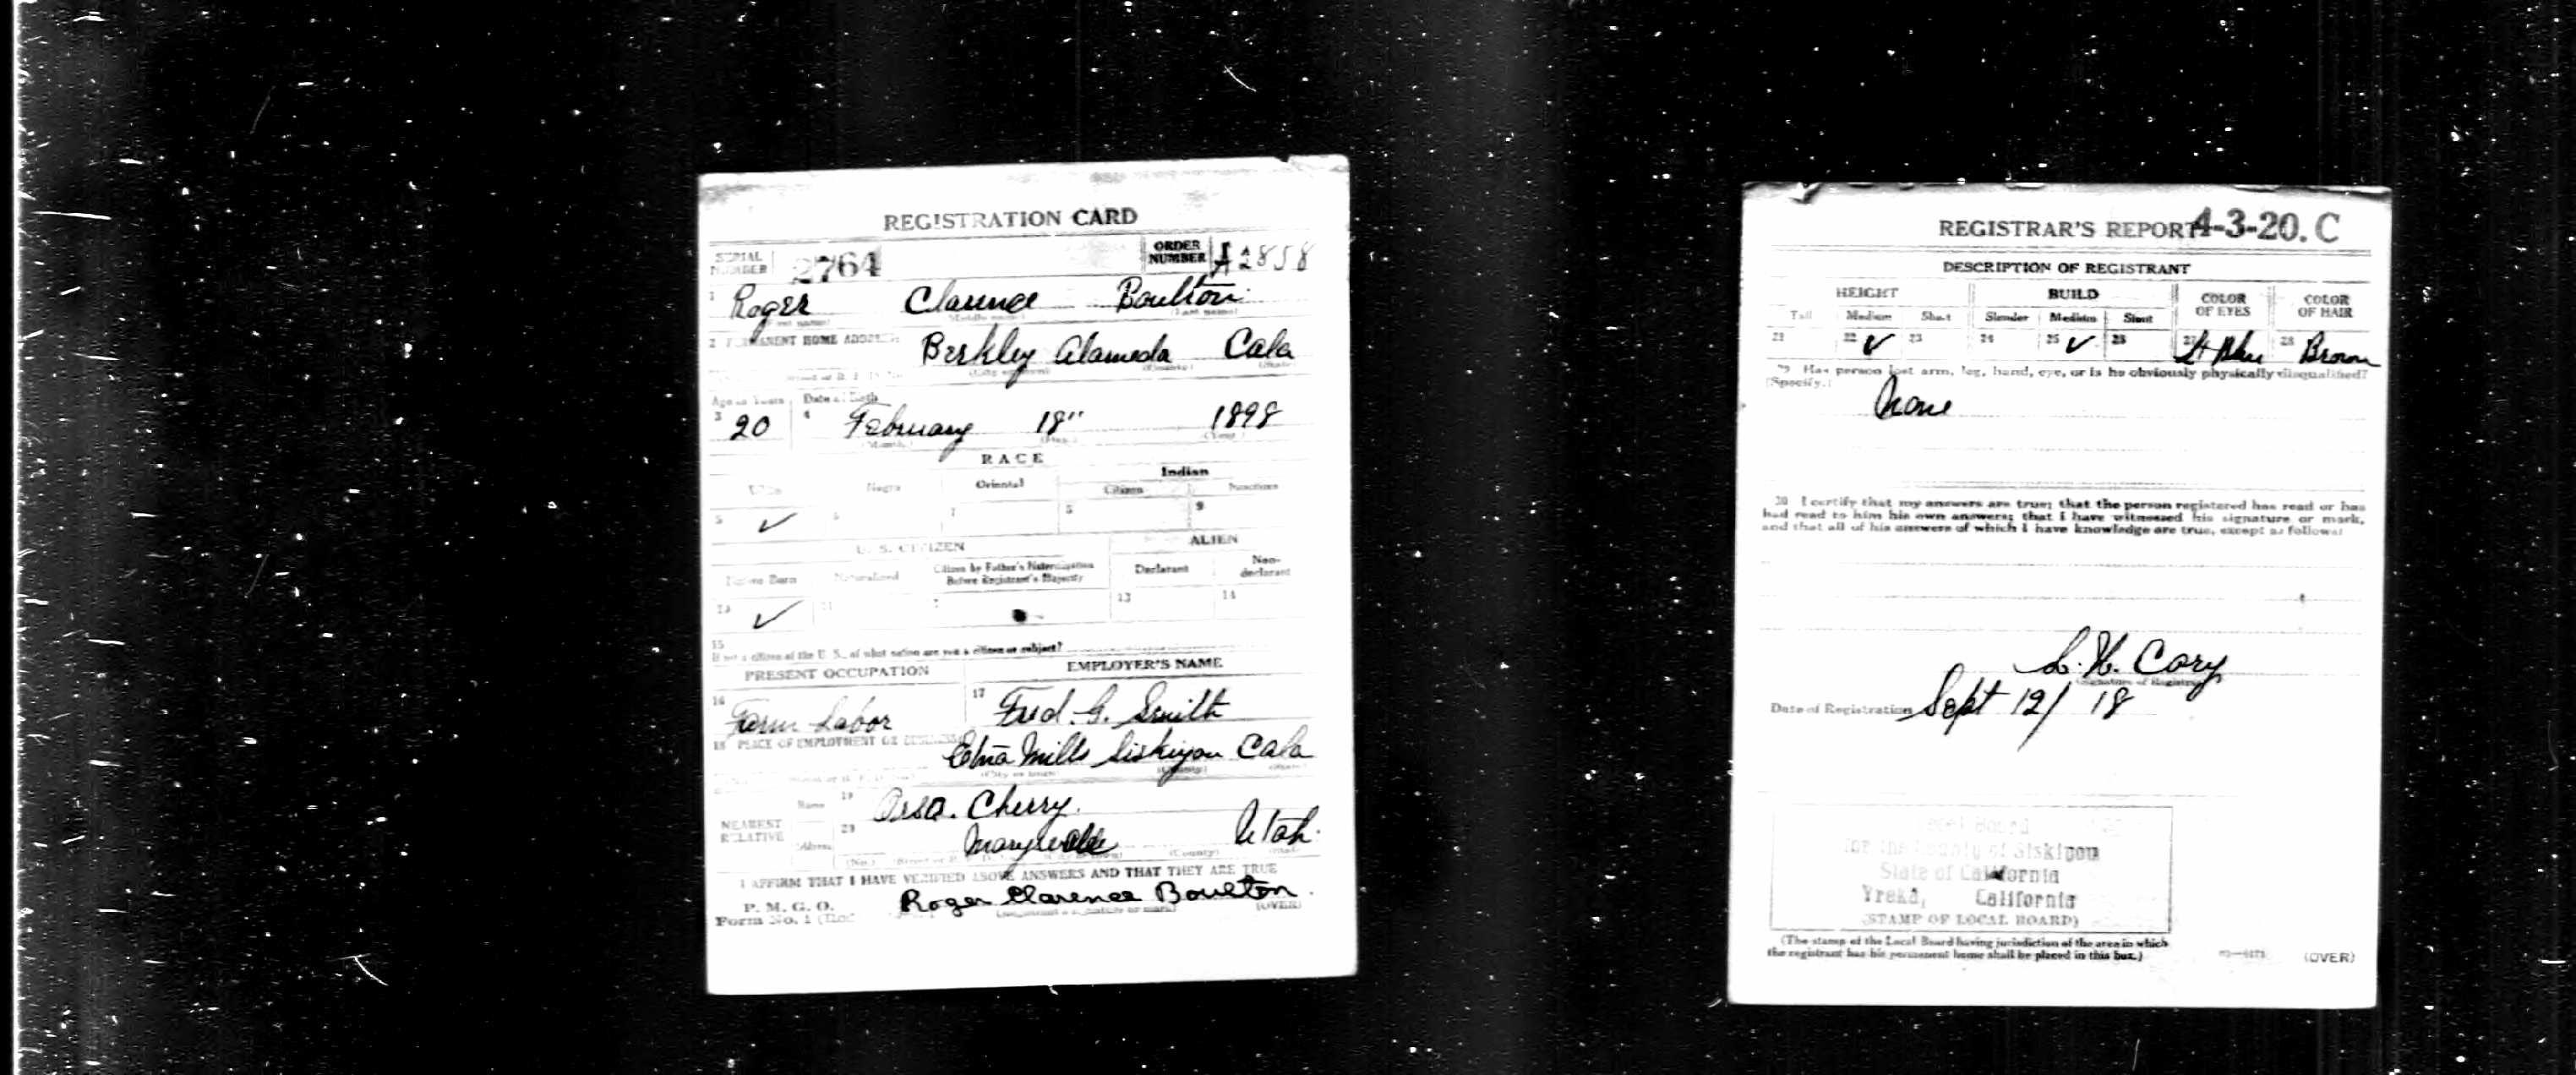 REGISTRATION CARD
SERIAL NUMBER 2764 ORDER NUMBER A2858
1 Roger Clarence Boulton
(Middle name) (Last name)
2 PERMANENT HOME ADDRESS: Berkley Alameda Cala
(City or town) (County) (State)
Age in Years Date of Birth
3 20 4 February 18" 1898
(Month) (Day) (Year)
RACE
White Negro Oriental Indian
Citizen Noncitizen
5 ✓ 6 7 8 9
U. S. CITIZEN ALIEN
Native Born Naturalized Citizen by Father's Naturalization Before Registrant's Majority Declarant Non-declarant
10 ✓ 11 13 14
15
If not a citizen of the U. S., of what nation are you a citizen or subject?
PRESENT OCCUPATION EMPLOYER'S NAME
16 Farm Labor 17 Fred. G. Smith
18 PLACE OF EMPLOYMENT OR BUSINESS: Etna Mills Siskiyou Cala
(City or town) (County) (State)
NEAREST RELATIVE Name 19 Cherry.
Address 20 Marysvale Utah.
(No.) (County)
I AFFIRM THAT I HAVE VERIFIED ABOVE ANSWERS AND THAT THEY ARE TRUE
P. M. G. O.
Form No. 1 Roger Clarence Boulton
(Registrant's signature or mark) (OVER)
REGISTRAR'S REPORT 4-3-20. C
DESCRIPTION OF REGISTRANT
HEIGHT BUILD COLOR OF EYES COLOR OF HAIR
Tall Medium Short Slender Medium Stout
21 22 ✓ 23 24 25 ✓ 26 27 Lt Blue 28 Brown
29 Has person lost arm, leg, hand, eye, or is he obviously physically disqualified?
(Specify.)
None
30 I certify that my answers are true; that the person registered has read or has
had read to him his own answers; that I have witnessed his signature or mark,
and that all of his answers of which I have knowledge are true, except as follows:
L. H. Cory
(Signature of Registrar)
Date of Registration Sept 12/ 18
Local Board
for the County of Siskiyou
State of California
Yreka, California
(STAMP OF LOCAL BOARD)
(The stamp of the Local Board having jurisdiction of the area in which
the registrant has his permanent home shall be placed in this box.)
(OVER)